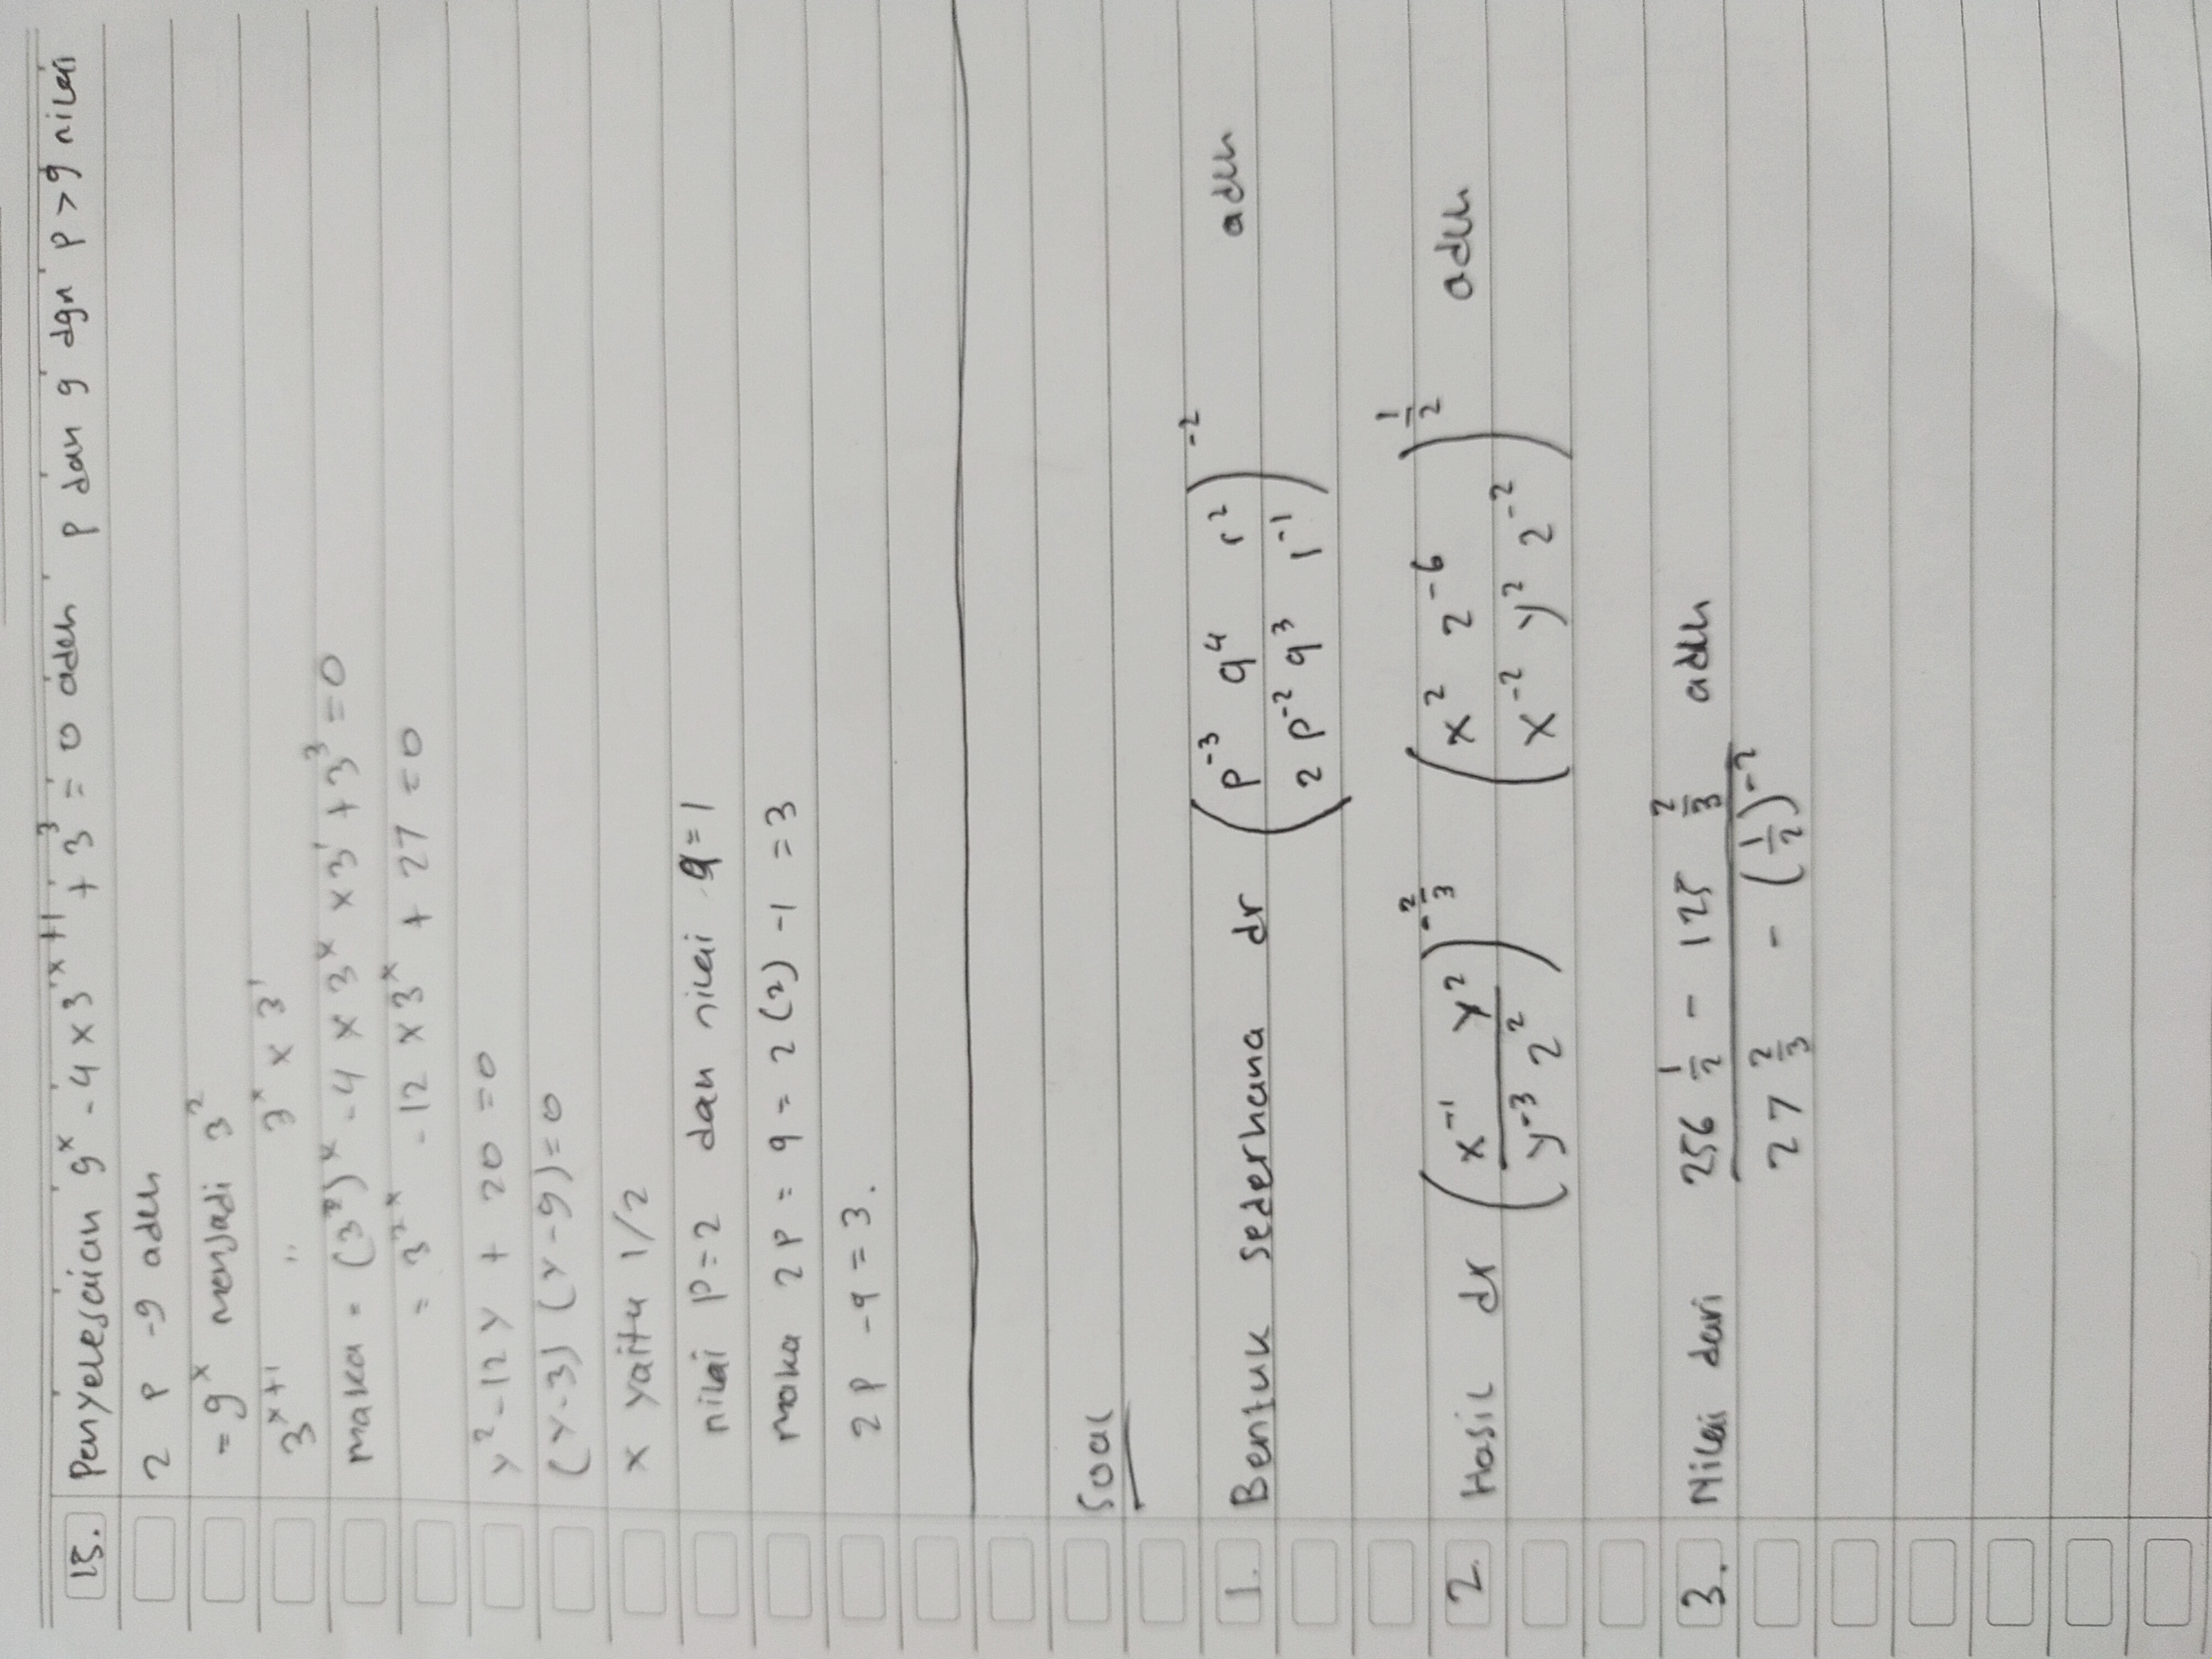 15. Penyelesaian 9ˣ - 4 x 3ˣ⁺¹ + 3³ = 0 adlh p dan q dgn p > q nilai
2 p - q adlh
= 9ˣ menjadi 3²
3ˣ⁺¹ " 3ˣ x 3¹
maka = (3²)ˣ - 4 x 3ˣ x 3¹ + 3³ = 0
= 3²ˣ - 12 x 3ˣ + 27 = 0
y² - 12 y + 20 = 0
(y - 3) (y - 9) = 0
x yaitu 1/2
nilai p = 2 dan nilai q = 1
maka 2 p = q = 2 (2) - 1 = 3
2 p - q = 3.
Soal
1. Bentuk sederhana dr (p⁻³ q⁴ r² / 2 p⁻² q³ r⁻¹)⁻² adlh
2. Hasil dr (x⁻¹ y² / y⁻³ z²)^(-2/3) (x² z⁻⁶ / x⁻² y² z⁻²)^(1/2) adlh
3. Nilai dari 256^(1/2) - 125^(2/3) / 27^(2/3) - (1/2)⁻² adlh